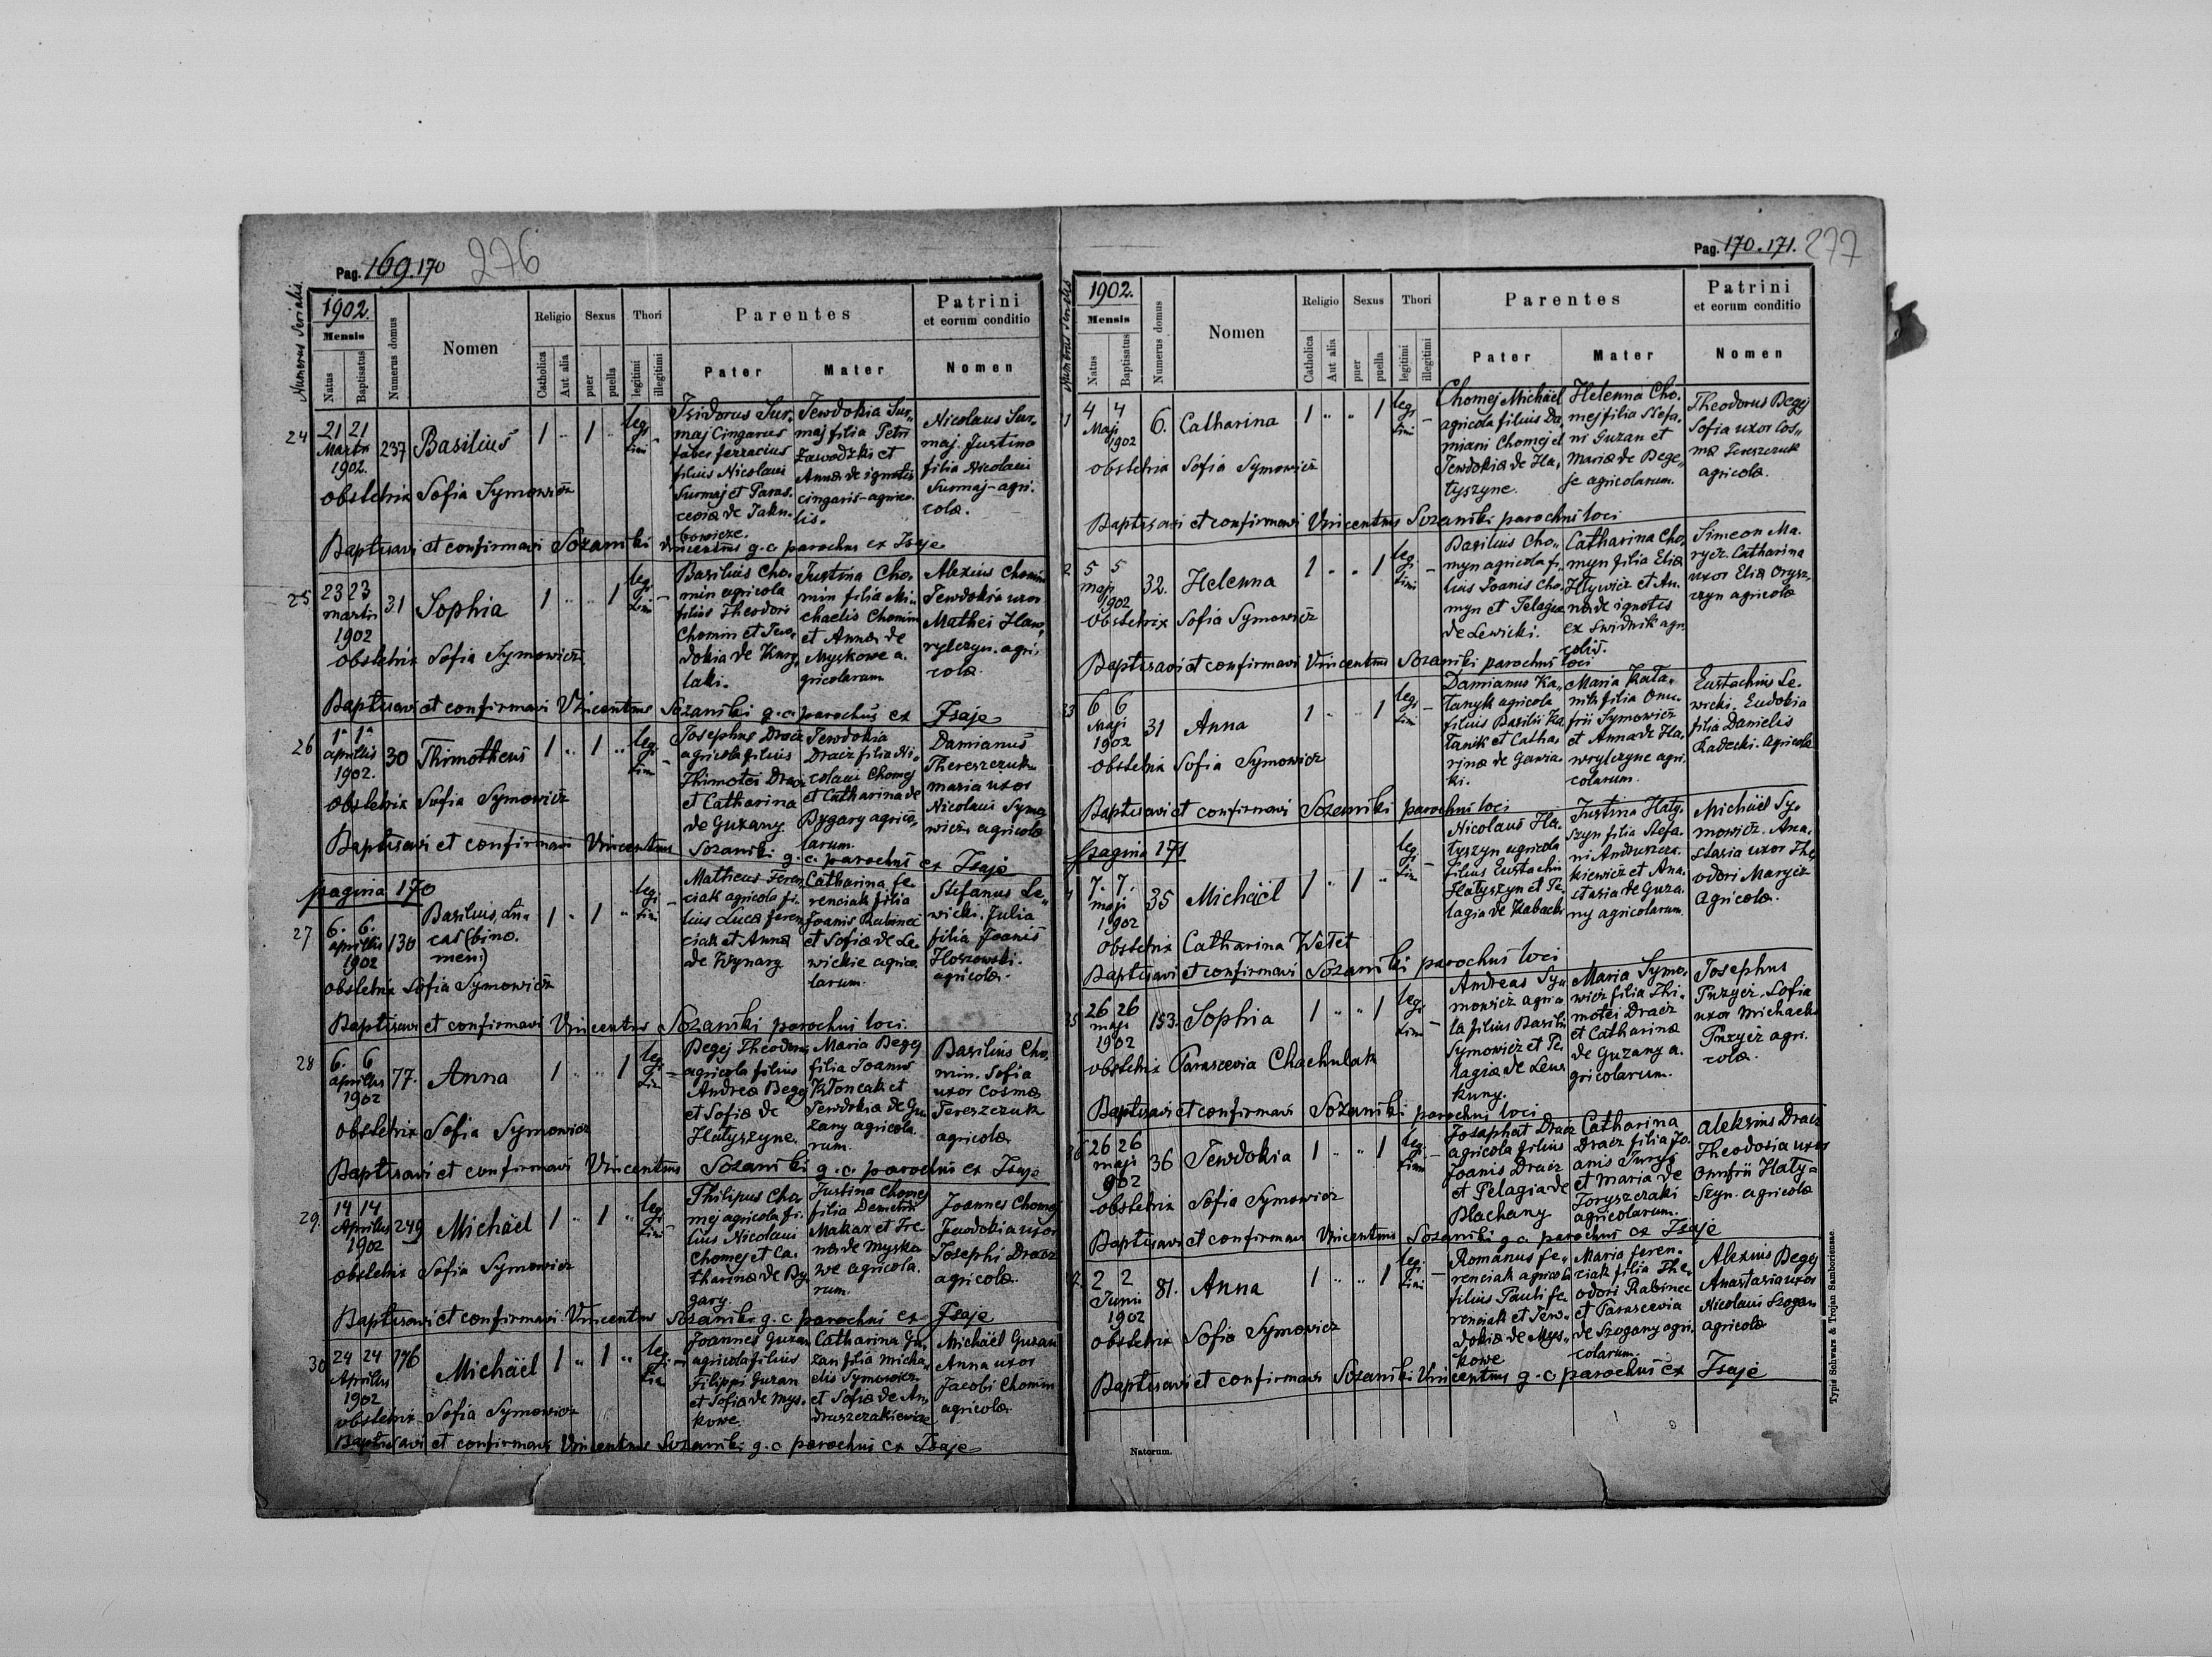 Pag. 169.170 276
Numerus Serialis.
1902.
Mensis
Natus
Baptisatus
Numerus domus
Nomen
Religio
Catholica
Aut alia
Sexus
puer
puella
Thori
legitimi
illegitimi
Parentes
Pater
Mater
Patrini
et eorum conditio
Nomen
24
21 21
Martii
1902.
237
Basilius
1 " 1 "
legi
timi
Isidorus Sur-
maj Cingarus
faber ferracius
filius Nicolaui
Surmaj et Paras-
cevia de Jaku-
bowicze.
Tewdokia Sur-
maj filia Petri
Zawodzki et
Anna de ignotis
cingaris-agrico-
lis.
Nicolaus Sur-
maj. Justina
filia Nicolaui
Surmaj-agri-
cola.
obstetrix Sofia Symowicz
Baptisavi et confirmavi Sozanski Vincentius g.c. parochus ex Isaje
25
23 23
martii
1902
31
Sophia
1 " " 1
legi
timi
Basilius Cho-
min agricola
filius Theodori
Chomin et Tew-
dokia de Kury-
laki.
Justina Cho-
min filia Mi-
chaelis Chomin
et Anna de
Myskowe a-
gricolarum
Alexius Chomin
Tewdokia uxor
Mathei Haw-
rylczyn. agri-
cola
obstetrix Sofia Symowicz
Baptisavi et confirmavi Vincentius Sozanski g.c. parochus ex Isaje
26
1. 1.
aprilis
1902.
30
Thimotheus
1 " 1 "
legi
timi
Josephus Dracz
agricola filius
Thimotei Dracz
et Catharina
de Guzany
Tewdokia
Dracz filia Ni-
colaui Chomej
et Catharina de
Bygary agrico-
larum.
Damianus
Thereszczuk
maria uxor
Nicolaui Symo-
wicz. agricola
obstetrix Sofia Symowicz
Baptisavi et confirmavi Vincentius Sozanski g.c. parochus ex Isaje
pagina 170
27
6. 6.
aprilis
1902
130
Basilius, Lu-
cas (bino-
meni)
1 " 1 "
legi
timi
Matheus Feren-
ciak agricola fi-
lius Luca feren-
ciak et Anna
de Wynary
Catharina fe-
renciak filia
Joanis Rabinec
et Sofia de Le-
wickie agrico-
larum.
Stefanus Le-
wicki. Julia
filia Joanis
Hoszowski-
agricola.
obstetrix Sofia Symowicz
Baptisavi et confirmavi Vincentius Sozanski parochus loci.
28
6. 6
aprilis
1902
77.
Anna
1 " " 1
legi
timi
Begej Theodorus
agricola filius
Andrea Begej
et Sofia de
Hatyszyne.
Maria Begej
filia Joanis
Kloncak et
Tewdokia de Gu-
zany agricola-
rum.
Basilius Cho-
min. Sofia
uxor Cosma
Tereszczuk
agricola
obstetrix Sofia Symowicz
Baptisavi et confirmavi Vincentius Sozanski g.c. parochus ex Isaje
29.
14 14
Aprilis
1902
249
Michäel
1 " 1 "
legi
timi
Philipus Cho-
mej agricola fi-
lius Nicolaui
Chomej et Ca-
tharina de By-
gary.
Justina Chomej
filia Demetri
Makar et Ire-
na de Mysko-
we agricola-
rum.
Joannes Chomej
Jewdokia uxor
Josephi Dracz
agricola.
obstetrix Sofia Symowicz
Baptisavi et confirmavi Vincentius Sozanski g.c. parochus ex Isaje
30
24 24
Aprilis
1902
176
Michäel
1 " 1 "
legi
timi
Joannes Guzan
agricola filius
Filippi Guzan
et Sofia de Mys-
kowe.
Catharina Gu-
zan filia Micha-
elis Symowicz
et Sofia de An-
druszczakiewicze
Michäel Guzan
Anna uxor
Jacobi Chomin
agricola.
obstetrix Sofia Symowicz
Baptisavi et confirmavi Vincentius Sozanski g.c. parochus ex Isaje
Pag. 170.171. 277
Numerus Serialis
1902.
Mensis
Natus
Baptisatus
Numerus domus
Nomen
Religio
Catholica
Aut alia
Sexus
puer
puella
Thori
legitimi
illegitimi
Parentes
Pater
Mater
Patrini
et eorum conditio
Nomen
4 4
Maji
1902
6.
Catharina
1 " " 1
legi
timi
Chomej Michäel
agricola filius Da-
miani Chomej et
Tewdokia de Ha-
tyszyne.
Helenna Cho-
mej filia Stefa-
ni Guzan et
Maria de Bege-
je agricolarum.
Theodorus Begej
Sofia uxor Cos-
ma Tereszczuk
agricola.
obstetrix Sofia Symowicz
Baptisavi et confirmavi Vincentius Sozanski parochus loci
5 5
maji
1902
32.
Helenna
1 " " 1
legi
timi
Basilius Cho-
myn agricola fi-
lius Joanis Cho-
myn et Pelagia
de Lewicki.
Catharina Cho-
myn filia Elia
Hlywicz et An-
na de ignotis
ex Swidnik agri-
colis.
Simeon Ma-
rycz. Catharina
uxor Elia Orysz-
czyn agricola
obstetrix Sofia Symowicz
Baptisavi et confirmavi Vincentius Sozanski parochus loci
6 6
Maji
1902
31
Anna
1 " " 1
legi
timi
Damianus Ka-
tanyk agricola
filius Basilii Ka-
tanik et Catha-
rina de Gawia-
ki.
Maria Kata-
nik filia Onu-
frii Symowicz
et Anna de Ha-
wrylczyne agri-
colarum.
Eustachius Le-
wicki. Eudokia
filia Danielis
Radecki. Agricola
obstetrix Sofia Symowicz
Baptisavi et confirmavi Sozanski parochus loci
pagina 171
7. 7.
maji
1902
35
Michäel
1 " 1 "
legi
tim
Nicolaus Ha-
tyszyn agricola
filius Eustachii
Hatyszyn et Pe-
lagia de Kabacki
Justina Haty-
szyn filia Stefa-
ni Andruszcza-
kiewicz et Ana-
stasia de Guza-
ny agricolarum.
Michäel Sy-
mowicz. Ana-
stasia uxor The-
odori Marycz
Agricola.
obstetrix Catharina Wetet
Baptisavi et confirmavi Sozanski parochus loci
26 26
maji
1902
153.
Sophia
1 " " 1
legi
timi
Andreas Sy-
mowicz agrico-
la filius Basili
Symowicz et Pe-
lagia de Lew-
kuny.
Maria Symo-
wicz filia Thi-
motei Dracz
et Catharina
de Guzany a-
gricolarum.
Josephus
Puzycz. Sofia
uxor Michaelis
Puzycz agri-
cola.
obstetrix Parascevia Chachulak
Baptisavi et confirmavi Sozanski parochus loci
26 26
maji
902
36
Tewdokia
1 " " 1
legi
timi
Josaphat Dracz
agricola filius
Joanis Dracz
et Pelagia de
Blachany
Catharina
Dracz filia Jo-
anis Turyj
et maria de
Toryszczaki
agricolarum.
aleksius Dracz
Theodosia uxor
Onufrii Haty-
szyn. agricola
obstetrix Sofia Symowicz
Baptisavi et confirmavi Vincentius Sozanski g.c. parochus ex Isaje
2 2
Junii
1902
81.
Anna
1 " " 1
legi
timi
Romanus fe-
renciak agricola
filius Pauli fe-
renciak et Tew-
dokia de Mys-
kowe
Maria feren-
ciak filia The-
odori Rabinec
et Parascevia
de Szogany agri-
colarum.
Alexius Begej
Anastasia uxor
Nicolaui Szogan
agricola
obstetrix Sofia Symowicz
Baptisavi et confirmavi Sozanski Vincentius g.c. parochus ex Isaje
Natorum.
Typis Schwarz & Trojan Samboriensae.